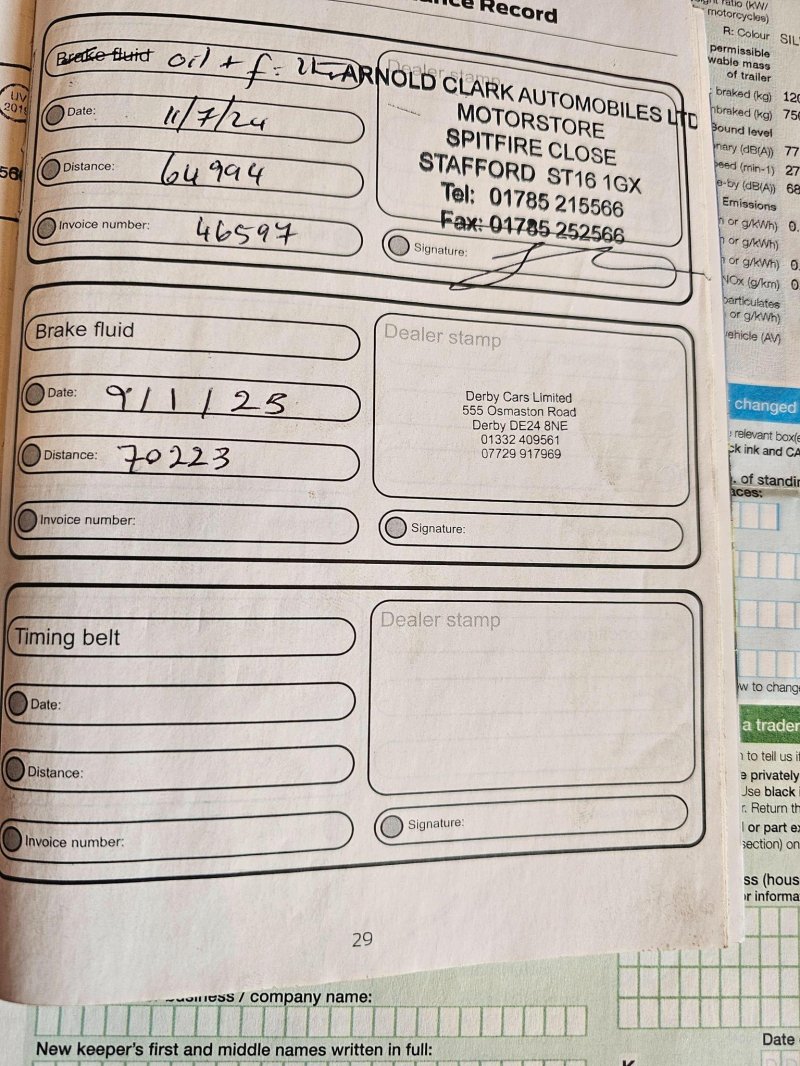 nce Record
Brake fluid oil + f
Dealer stamp
ARNOLD CLARK AUTOMOBILES LTD
MOTORSTORE
SPITFIRE CLOSE
STAFFORD ST16 1GX
Tel: 01785 215566
Fax: 01785 252566
Date: 11/7/24
Distance: 64994
Invoice number: 46597
Signature:
Brake fluid
Date: 9/1/25
Distance: 70223
Invoice number:
Dealer stamp
Derby Cars Limited
555 Osmaston Road
Derby DE24 8NE
01332 409561
07729 917969
Signature:
Timing belt
Date:
Distance:
Invoice number:
Dealer stamp
Signature:
29
UV
motorcycles)
R: Colour SIL
permissible
wable mass
of trailer
braked (kg) 120
nbraked (kg) 750
Sound level
nary (dB(A)) 77
eed (min-1) 27
e-by (dB(A)) 68
Emissions
n or g/kWh) 0.
or g/kWh)
or g/kWh) 0
NOx (g/km) 0
particulates
or g/kWh)
vehicle (AV)
changed
relevant box(e
ck ink and CA
. of standin
aces:
w to chang
a trader
to tell us if
e privately
Use black
r. Return th
l or part ex
section) on
ss (hous
r informa
business / company name:
New keeper's first and middle names written in full:
Date